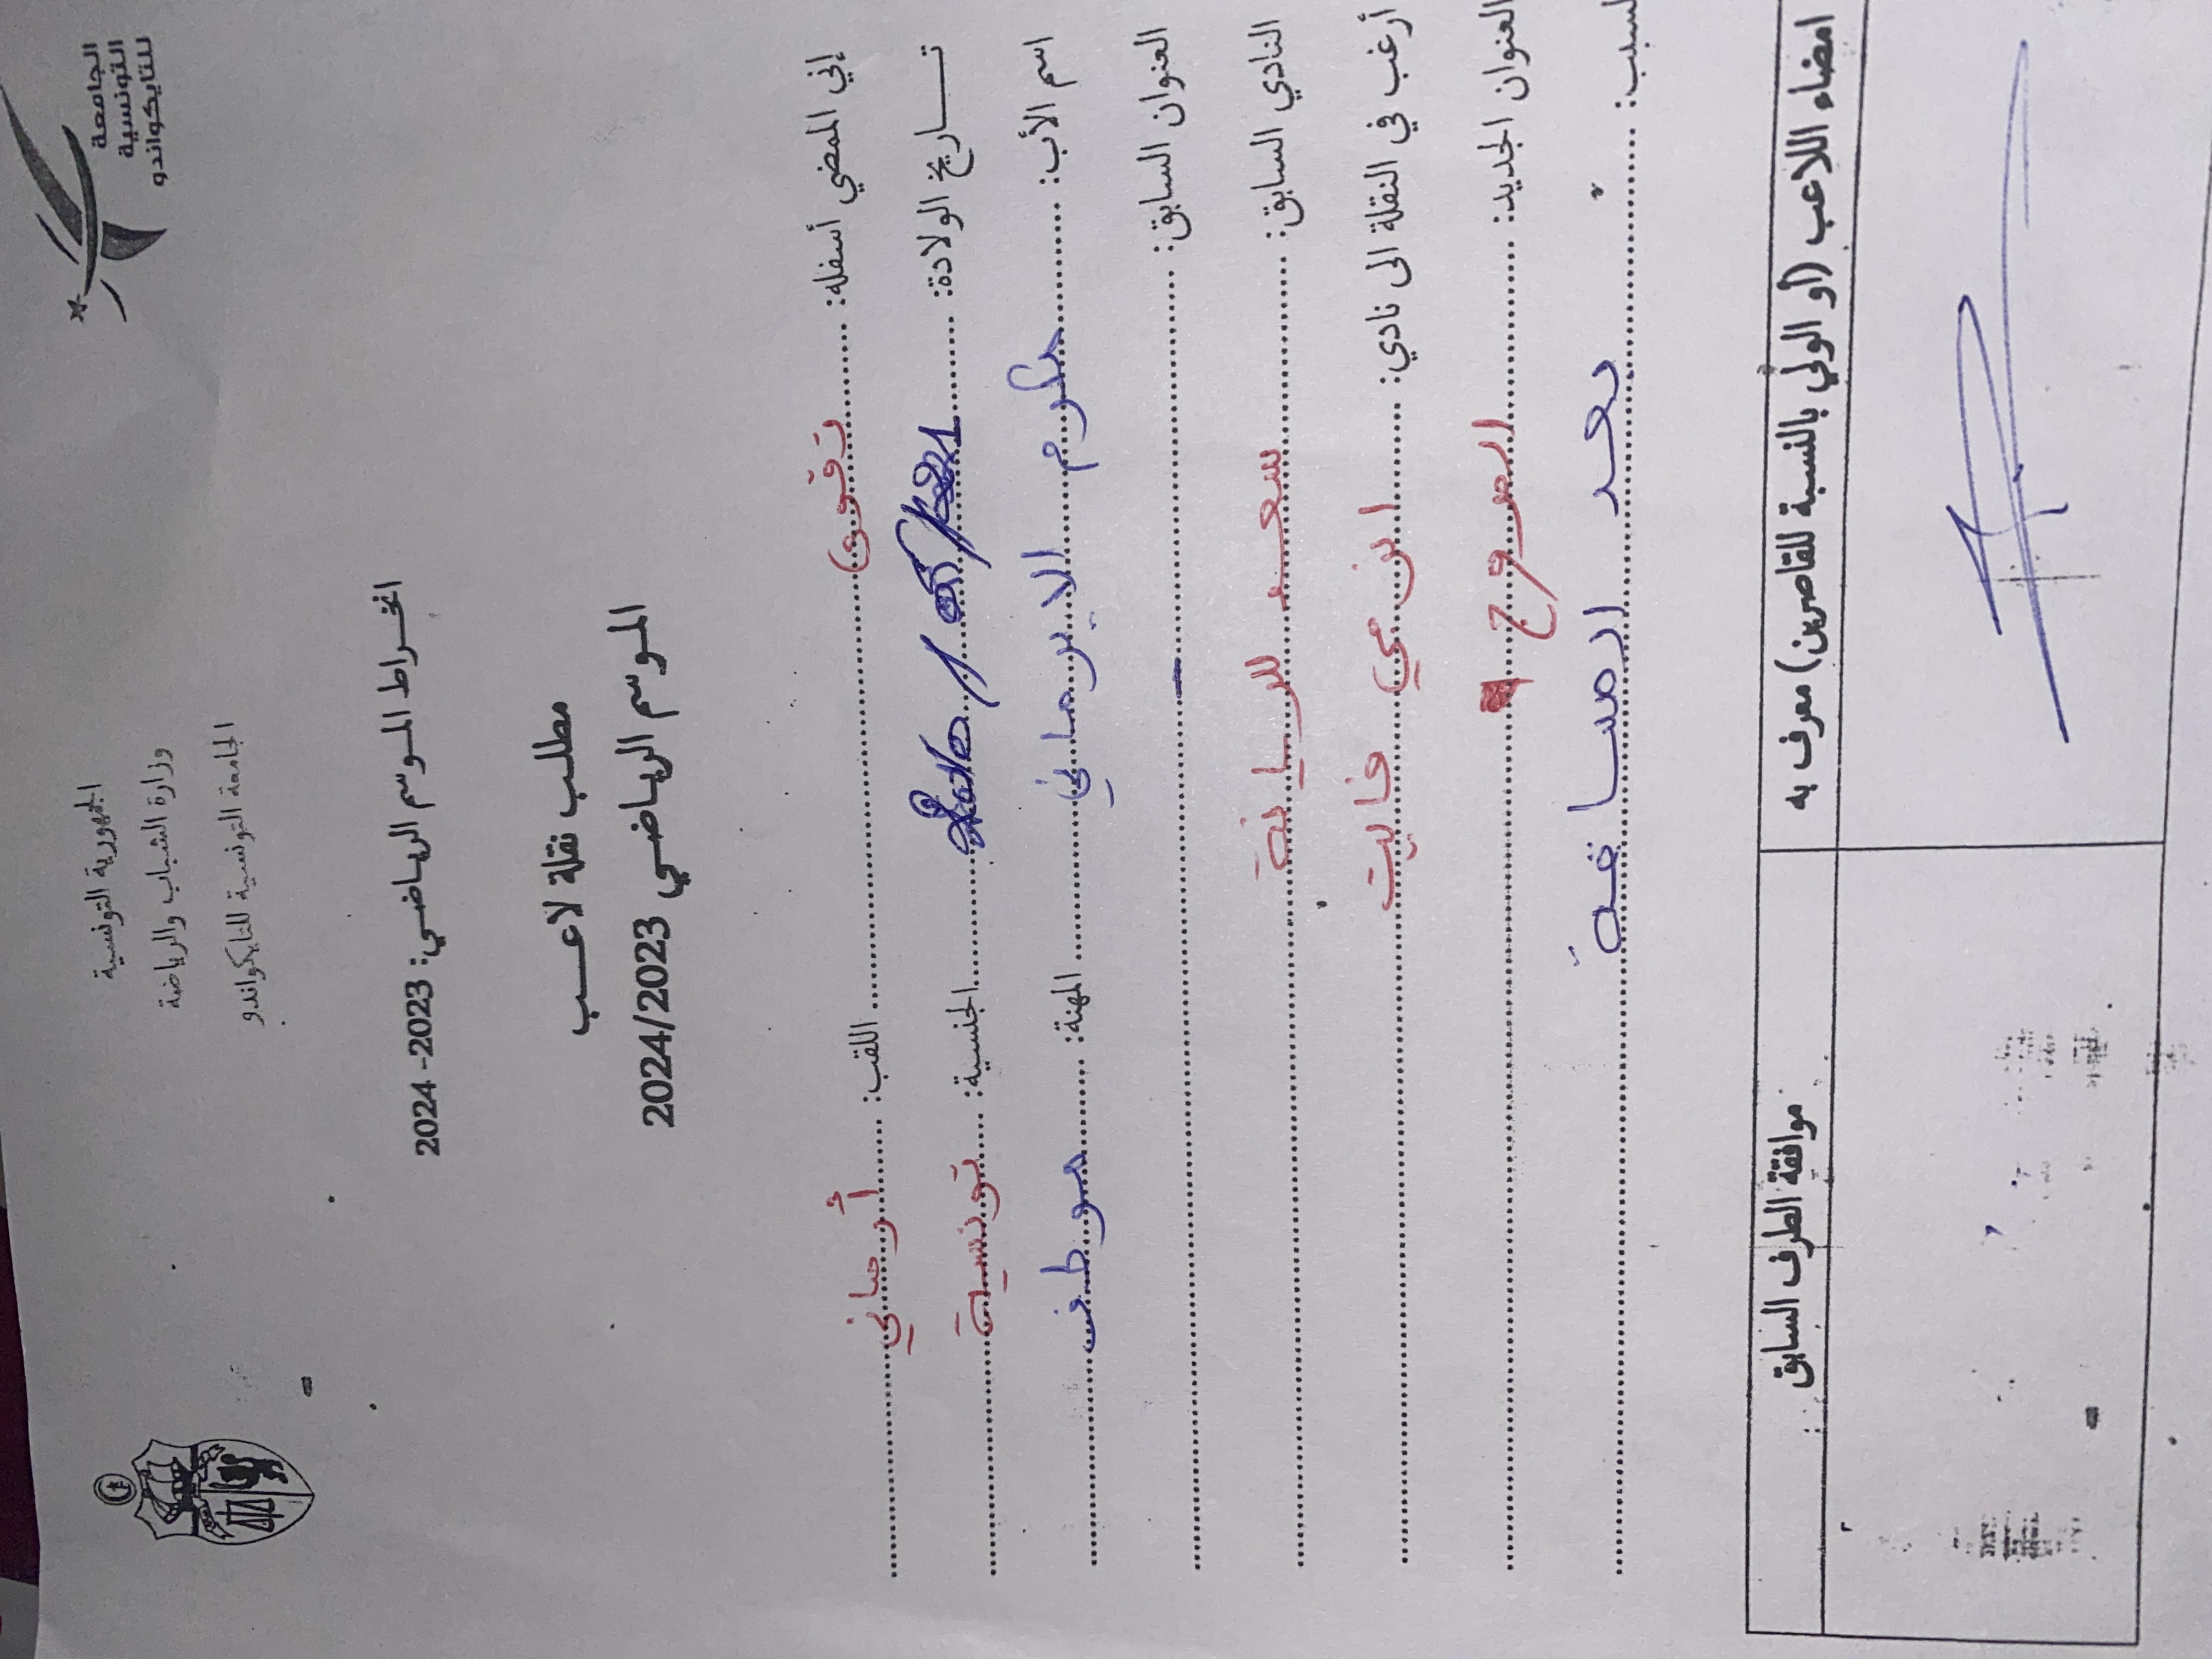 الجامعة
التونسية
للتايكواندو
الجمهورية التونسية
وزارة الشباب والرياضة
الجامعة التونسية للتايكواندو
انخراط الموسم الرياضي: 2023- 2024
مطلب نقلة لاعب
الموسم الرياضي 2024/2023
إني الممضي أسفله: تقوى اللقب: أرماني
تاريخ الولادة: الجنسية: تونسية
اسم الأب: مكرم المهنة: موظف
العنوان السابق: -
النادي السابق: سعد للرياضة
أرغب في النقلة الى نادي: ان مي فايت
العنوان الجديد: المروج
السبب: بعد المسافة
امضاء اللاعب (أو الولي بالنسبة للقاصرين) معرف به
موافقة الطرف السابق